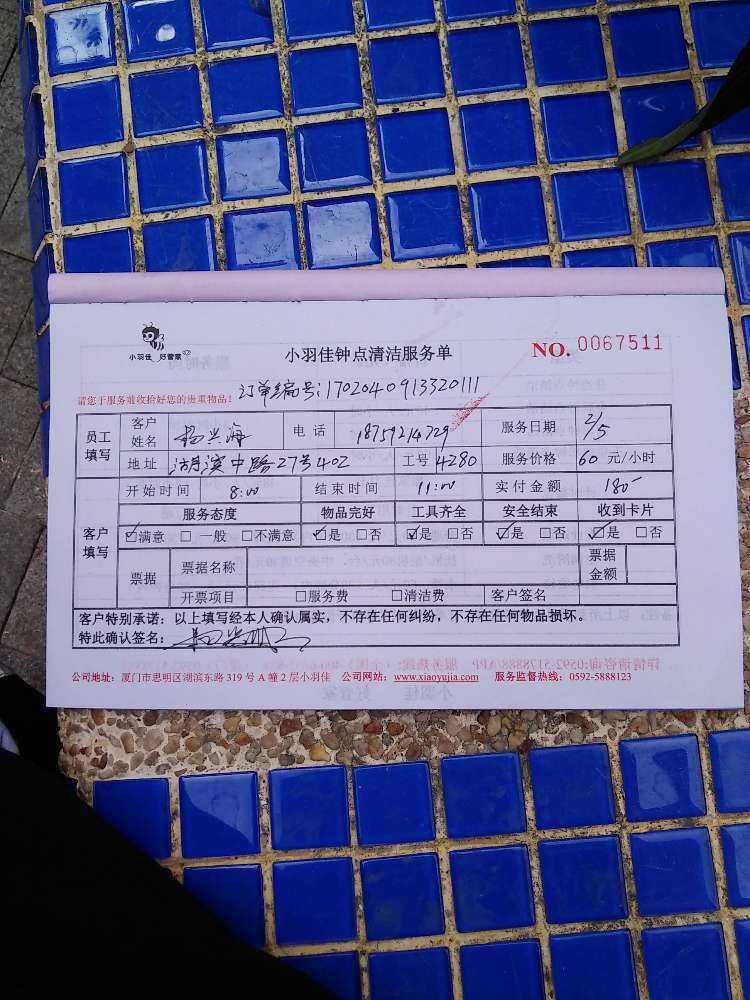 小羽佳 好管家
小羽佳钟点清洁服务单
NO. 0067511
请您于服务前收拾好您的贵重物品!
订单编号:1702040913320111
员工填写 客户姓名 杨兴海 电话 18759214729 服务日期 2/5
地址 湖滨中路27号402 工号 4280 服务价格 60 元/小时
客户填写 开始时间 8:00 结束时间 11:00 实付金额 180
服务态度 物品完好 工具齐全 安全结束 收到卡片
☑满意 □ 一般 □不满意 ☑是 □否 ☑是 □否 ☑是 □否 ☑是 □否
票据 票据名称 票据金额
开票项目 □服务费 □清洁费 客户签名
客户特别承诺:以上填写经本人确认属实,不存在任何纠纷,不存在任何物品损坏。
特此确认签名:
公司地址:厦门市思明区湖滨东路 319 号 A 幢 2 层小羽佳 公司网站:www.xiaoyujia.com 服务监督热线:0592-5888123